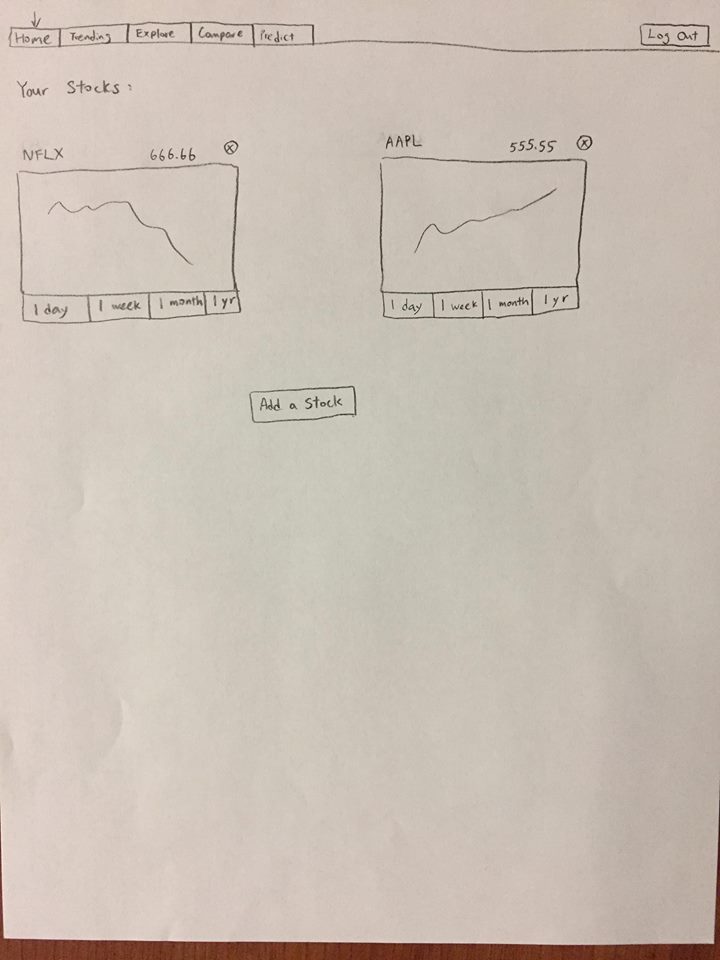 Home Trending Explore Compare Predict Log Out
Your Stocks:
NFLX 666.66 ⓧ AAPL 555.55 ⓧ
1 day 1 week 1 month 1 yr 1 day 1 week 1 month 1 yr
Add a Stock